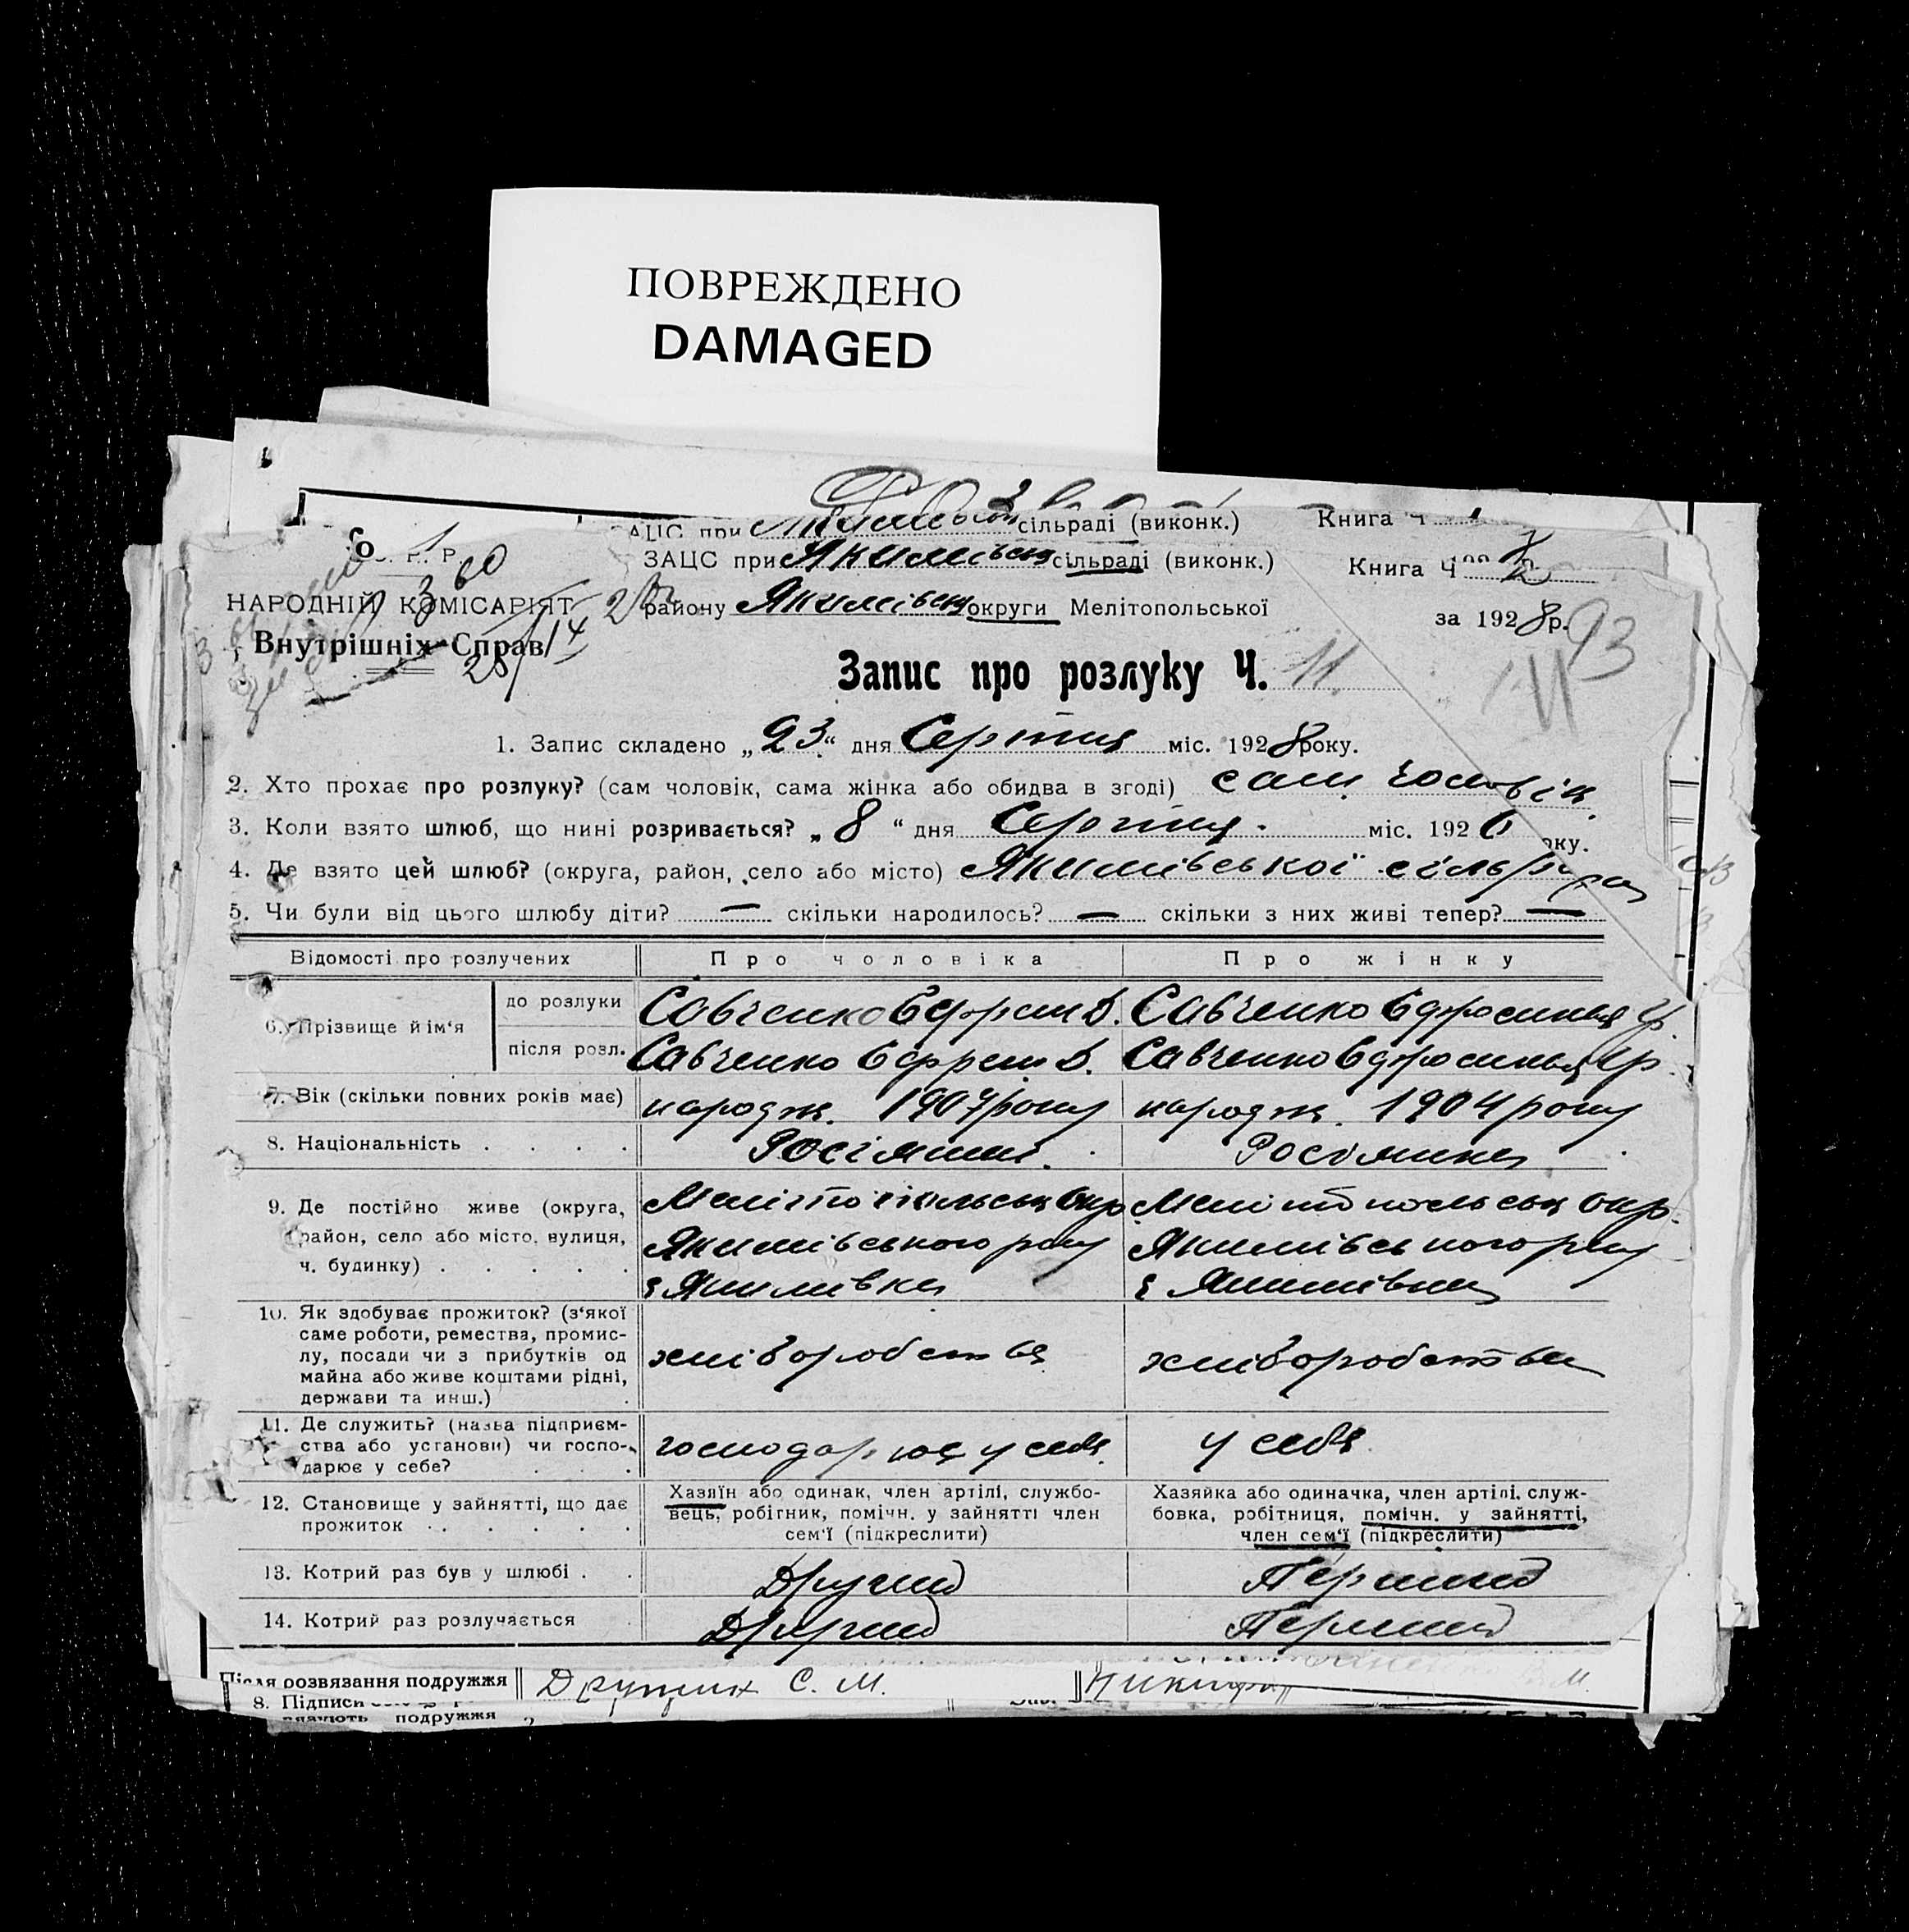 ПОВРЕЖДЕНО
DAMAGED
ЗАЦС при сільраді (виконк.) Книга Ч
С. Р. Р.
360
ЗАЦС при Якимівськ сільраді (виконк.) Книга Ч
НАРОДНІЙ КОМІСАРІЯТ
району Якимівськ округи Мелітопольської за 1928 р.
93
Внутрішніх Справ
Запис про розлуку Ч. 11.
1. Запис складено „23“ дня Серпня міс. 1928 року.
2. Хто прохає про розлуку? (сам чоловік, сама жінка або обидва в згоді) сам чоловік
3. Коли взято шлюб, що нині розривається? „8“ дня Серпня. міс. 1926 оку.
4. Де взято цей шлюб? (округа, район, село або місто) Якимівської сільради
5. Чи були від цього шлюбу діти? — скільки народилось? — скільки з них живі тепер? —
Відомості про розлучених Про чоловіка Про жінку
6. Прізвище й ім‘я
до розлуки Савченко Ефрем Д. Савченко Ефросинья Гр.
після розл. Савченко Ефрем Д. Савченко Ефросинья Гр.
7. Вік (скільки повних років має) народж. 1907 року народж. 1904 року
8. Національність Росіянин. Росіянка
9. Де постійно живе (округа, Мелітопільськ Окр Мелітопольськ Окр.
район, село або місто, вулиця, Якимівського р-ну Якимівського р-ну
ч. будинку) с Якимівка с Якимівка
10. Як здобуває прожиток? (з‘якої
саме роботи, ремества, промис-
лу, посади чи з прибутків од хліборобства хліборобства
майна або живе коштами рідні,
держави та инш.)
11. Де служить? (назва підприєм-
ства або установи) чи госпо- господарює у себе. у себе
дарює у себе?
12. Становище у зайнятті, що дає
прожиток
Хазяїн або одинак, член артілі, службо-
вець, робітник, помічн. у зайнятті член
сем‘ї (підкреслити)
Хазяйка або одиначка, член артілі, служ-
бовка, робітниця, помічн. у зайнятті,
член сем‘ї (підкреслити)
13. Котрий раз був у шлюбі Другий Перший
14. Котрий раз розлучається Другий Перший
Після розвязання подружжя С. М.
8. Підписи
подружжя